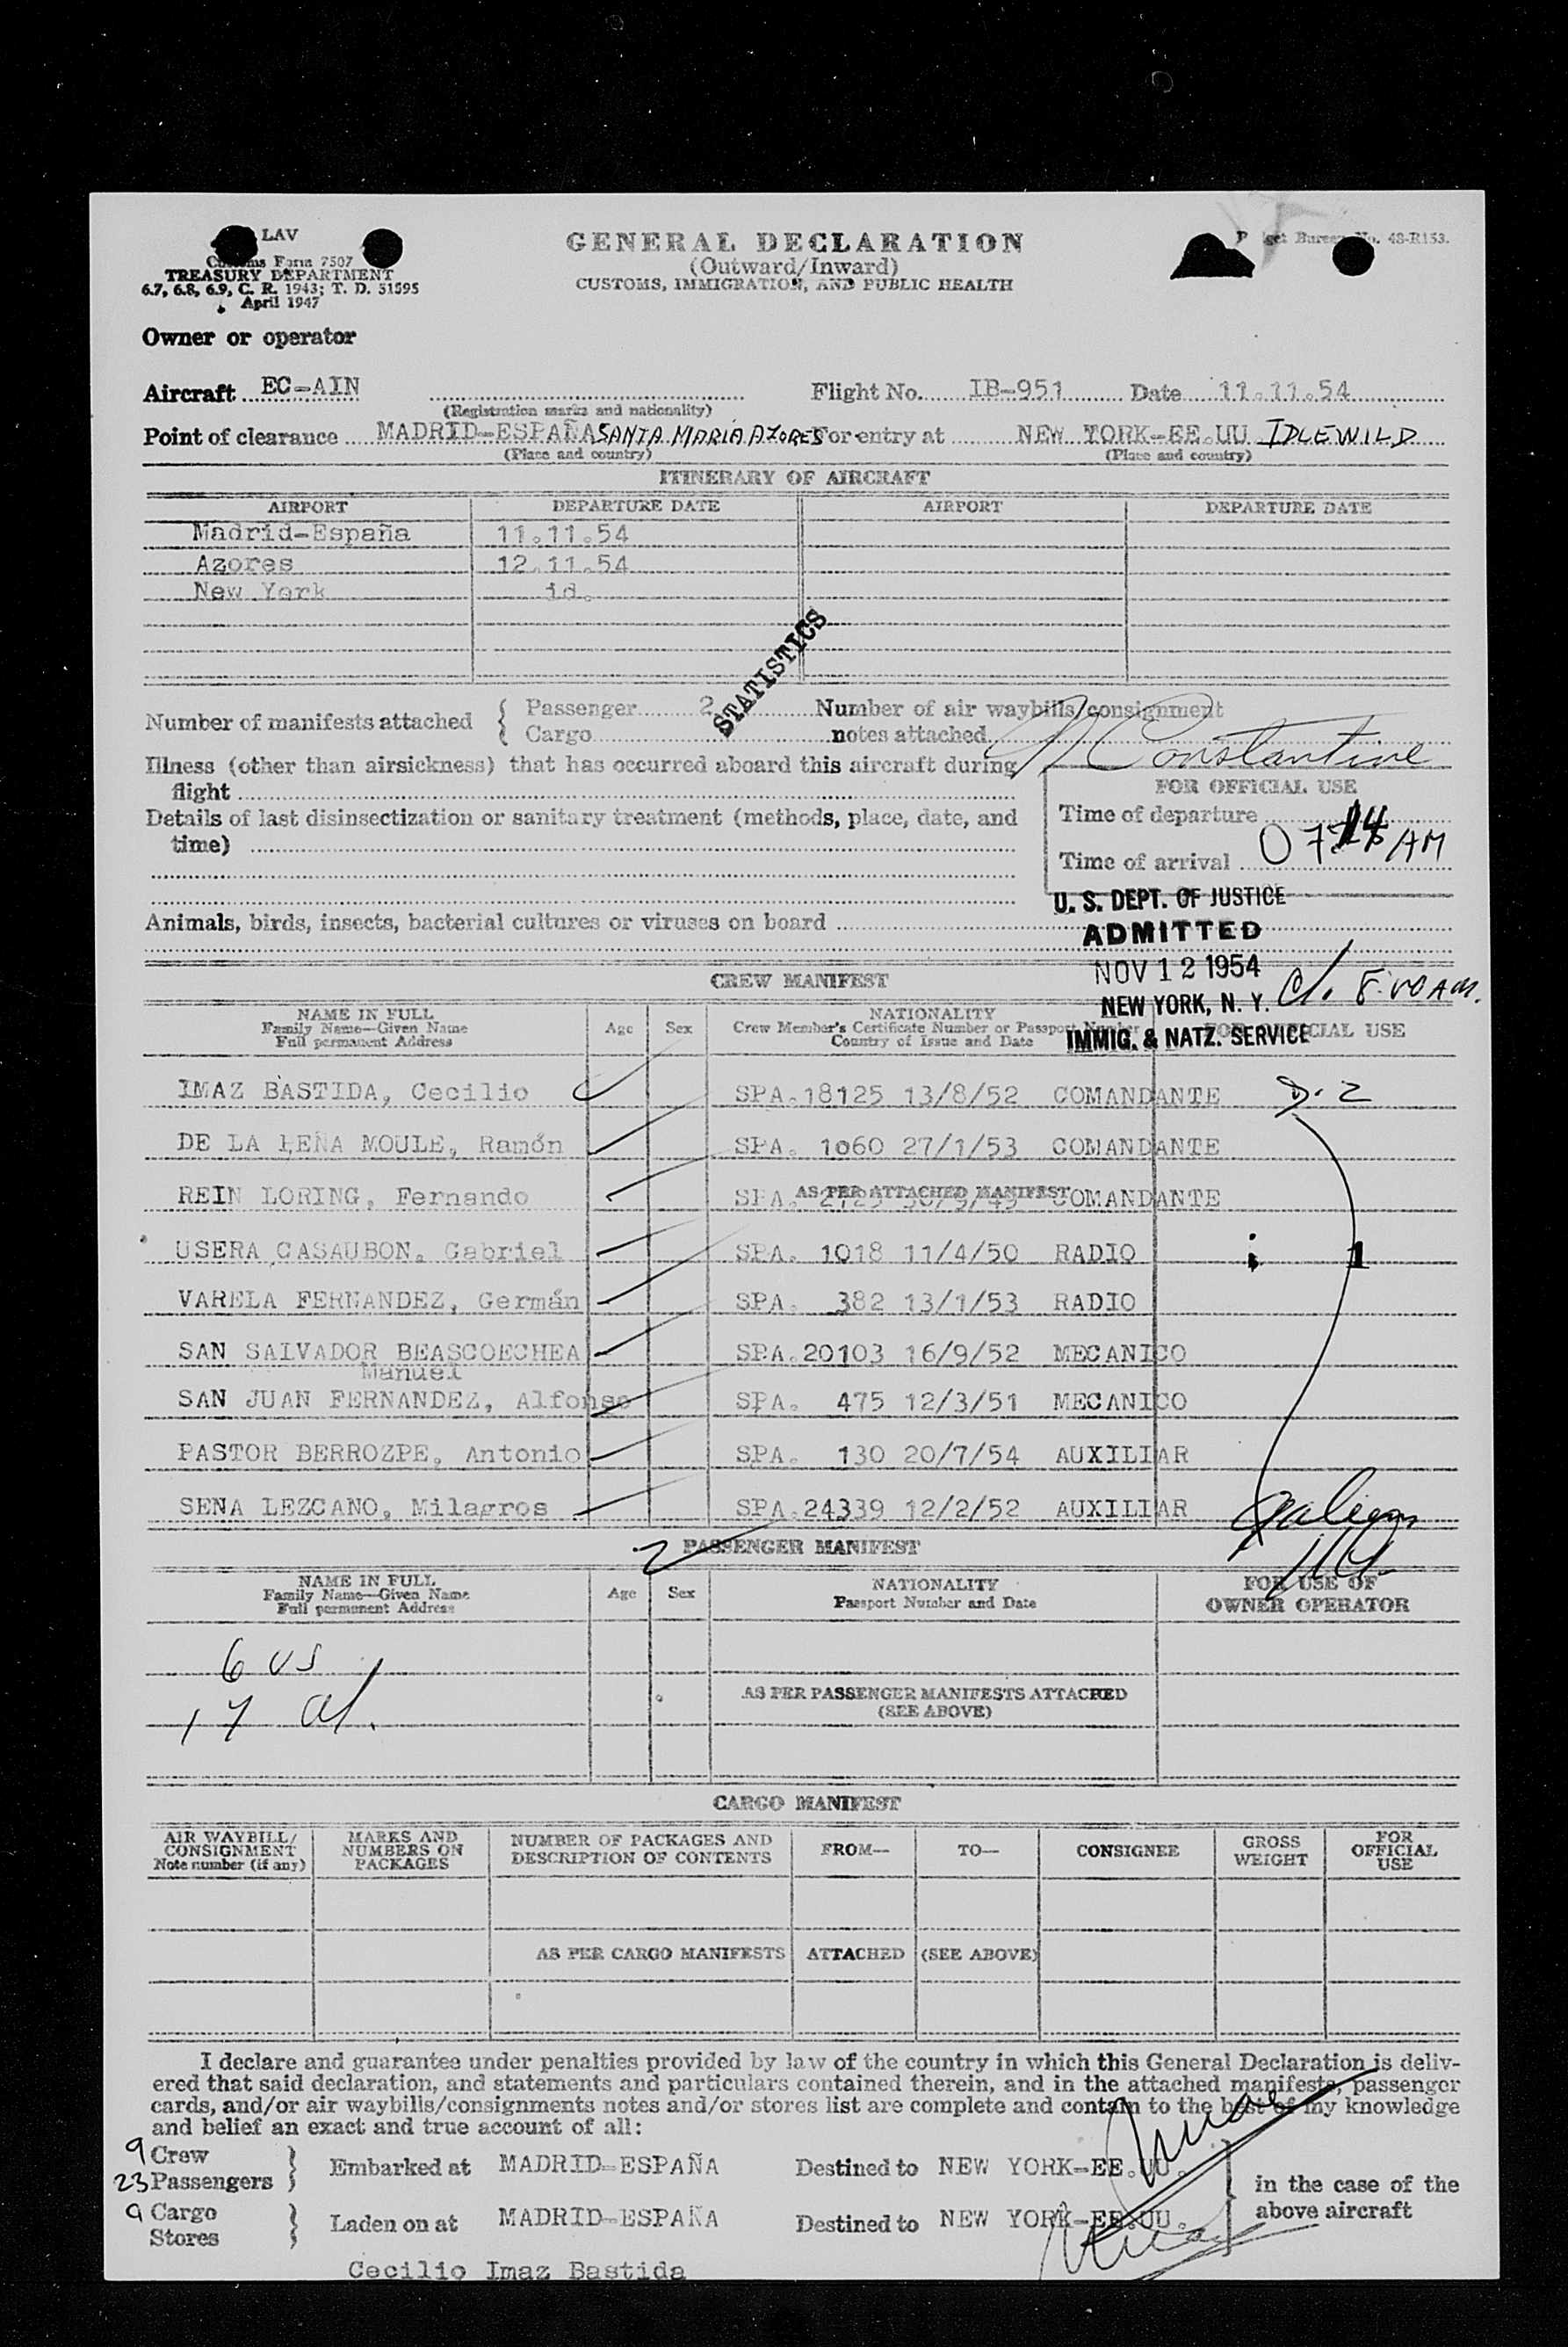 LAV
Customs Form 7507
TREASURY DEPARTMENT
6.7, 6.8, 6.9, C. R. 1943; T. D. 51595
April 1947
GENERAL DECLARATION
(Outward/Inward)
CUSTOMS, IMMIGRATION, AND PUBLIC HEALTH
get Bureau No. 48-R153.
Owner or operator
Aircraft EC-AIN Flight No. IB-951 Date 11.11.54
(Registration marks and nationality)
Point of clearance MADRID-ESPAÑA SANTA MARIA AZORES For entry at NEW YORK-EE.UU IDLEWILD
(Place and country) (Place and country)
ITINERARY OF AIRCRAFT
AIRPORT DEPARTURE DATE AIRPORT DEPARTURE DATE
Madrid-España 11.11.54
Azores 12.11.54
New York id.
STATISTICS
Number of manifests attached { Passenger 2 Number of air waybills/consignment
Cargo notes attached
Constantine
Illness (other than airsickness) that has occurred aboard this aircraft during
flight
FOR OFFICIAL USE
Details of last disinsectization or sanitary treatment (methods, place, date, and
time)
Time of departure
Time of arrival AM
U. S. DEPT. OF JUSTICE
Animals, birds, insects, bacterial cultures or viruses on board
ADMITTED
NOV 12 1954
NEW YORK, N. Y.
IMMIG. & NATZ. SERVICE
CREW MANIFEST
NAME IN FULL
Family Name—Given Name
Full permanent Address
Age Sex
NATIONALITY
Crew Member's Certificate Number or Passport Number
Country of Issue and Date
FOR OFFICIAL USE
IMAZ BASTIDA, Cecilio SPA. 18125 13/8/52 COMANDANTE D-2
DE LA PEÑA MOULE, Ramón SPA. 1060 27/1/53 COMANDANTE
AS PER ATTACHED MANIFEST
REIN LORING, Fernando SPA. COMANDANTE
USERA CASAUBON, Gabriel SPA. 1018 11/4/50 RADIO 1
VARELA FERNANDEZ, Germán SPA. 382 13/1/53 RADIO
SAN SALVADOR BEASCOECHEA SPA. 20103 16/9/52 MECANICO
Manuel
SAN JUAN FERNANDEZ, Alfonso SPA. 475 12/3/51 MECANICO
PASTOR BERROZPE, Antonio SPA. 130 20/7/54 AUXILIAR
SENA LEZCANO, Milagros SPA. 24339 12/2/52 AUXILIAR
PASSENGER MANIFEST
NAME IN FULL
Family Name—Given Name
Full permanent Address
Age Sex
NATIONALITY
Passport Number and Date
FOR USE OF
OWNER OPERATOR
6 US
17 al.
AS PER PASSENGER MANIFESTS ATTACHED
(SEE ABOVE)
CARGO MANIFEST
AIR WAYBILL/
CONSIGNMENT
Note number (if any)
MARKS AND
NUMBERS ON
PACKAGES
NUMBER OF PACKAGES AND
DESCRIPTION OF CONTENTS
FROM—
TO—
CONSIGNEE
GROSS
WEIGHT
FOR
OFFICIAL
USE
AS PER CARGO MANIFESTS ATTACHED (SEE ABOVE)
I declare and guarantee under penalties provided by law of the country in which this General Declaration is deliv-
ered that said declaration, and statements and particulars contained therein, and in the attached manifests, passenger
cards, and/or air waybills/consignments notes and/or stores list are complete and contain to the best of my knowledge
and belief an exact and true account of all:
9 Crew
23 Passengers } Embarked at MADRID-ESPAÑA Destined to NEW YORK-EE.UU. in the case of the
9 Cargo
Stores } Laden on at MADRID-ESPAÑA Destined to NEW YORK-EE.UU. above aircraft
Cecilio Imaz Bastida